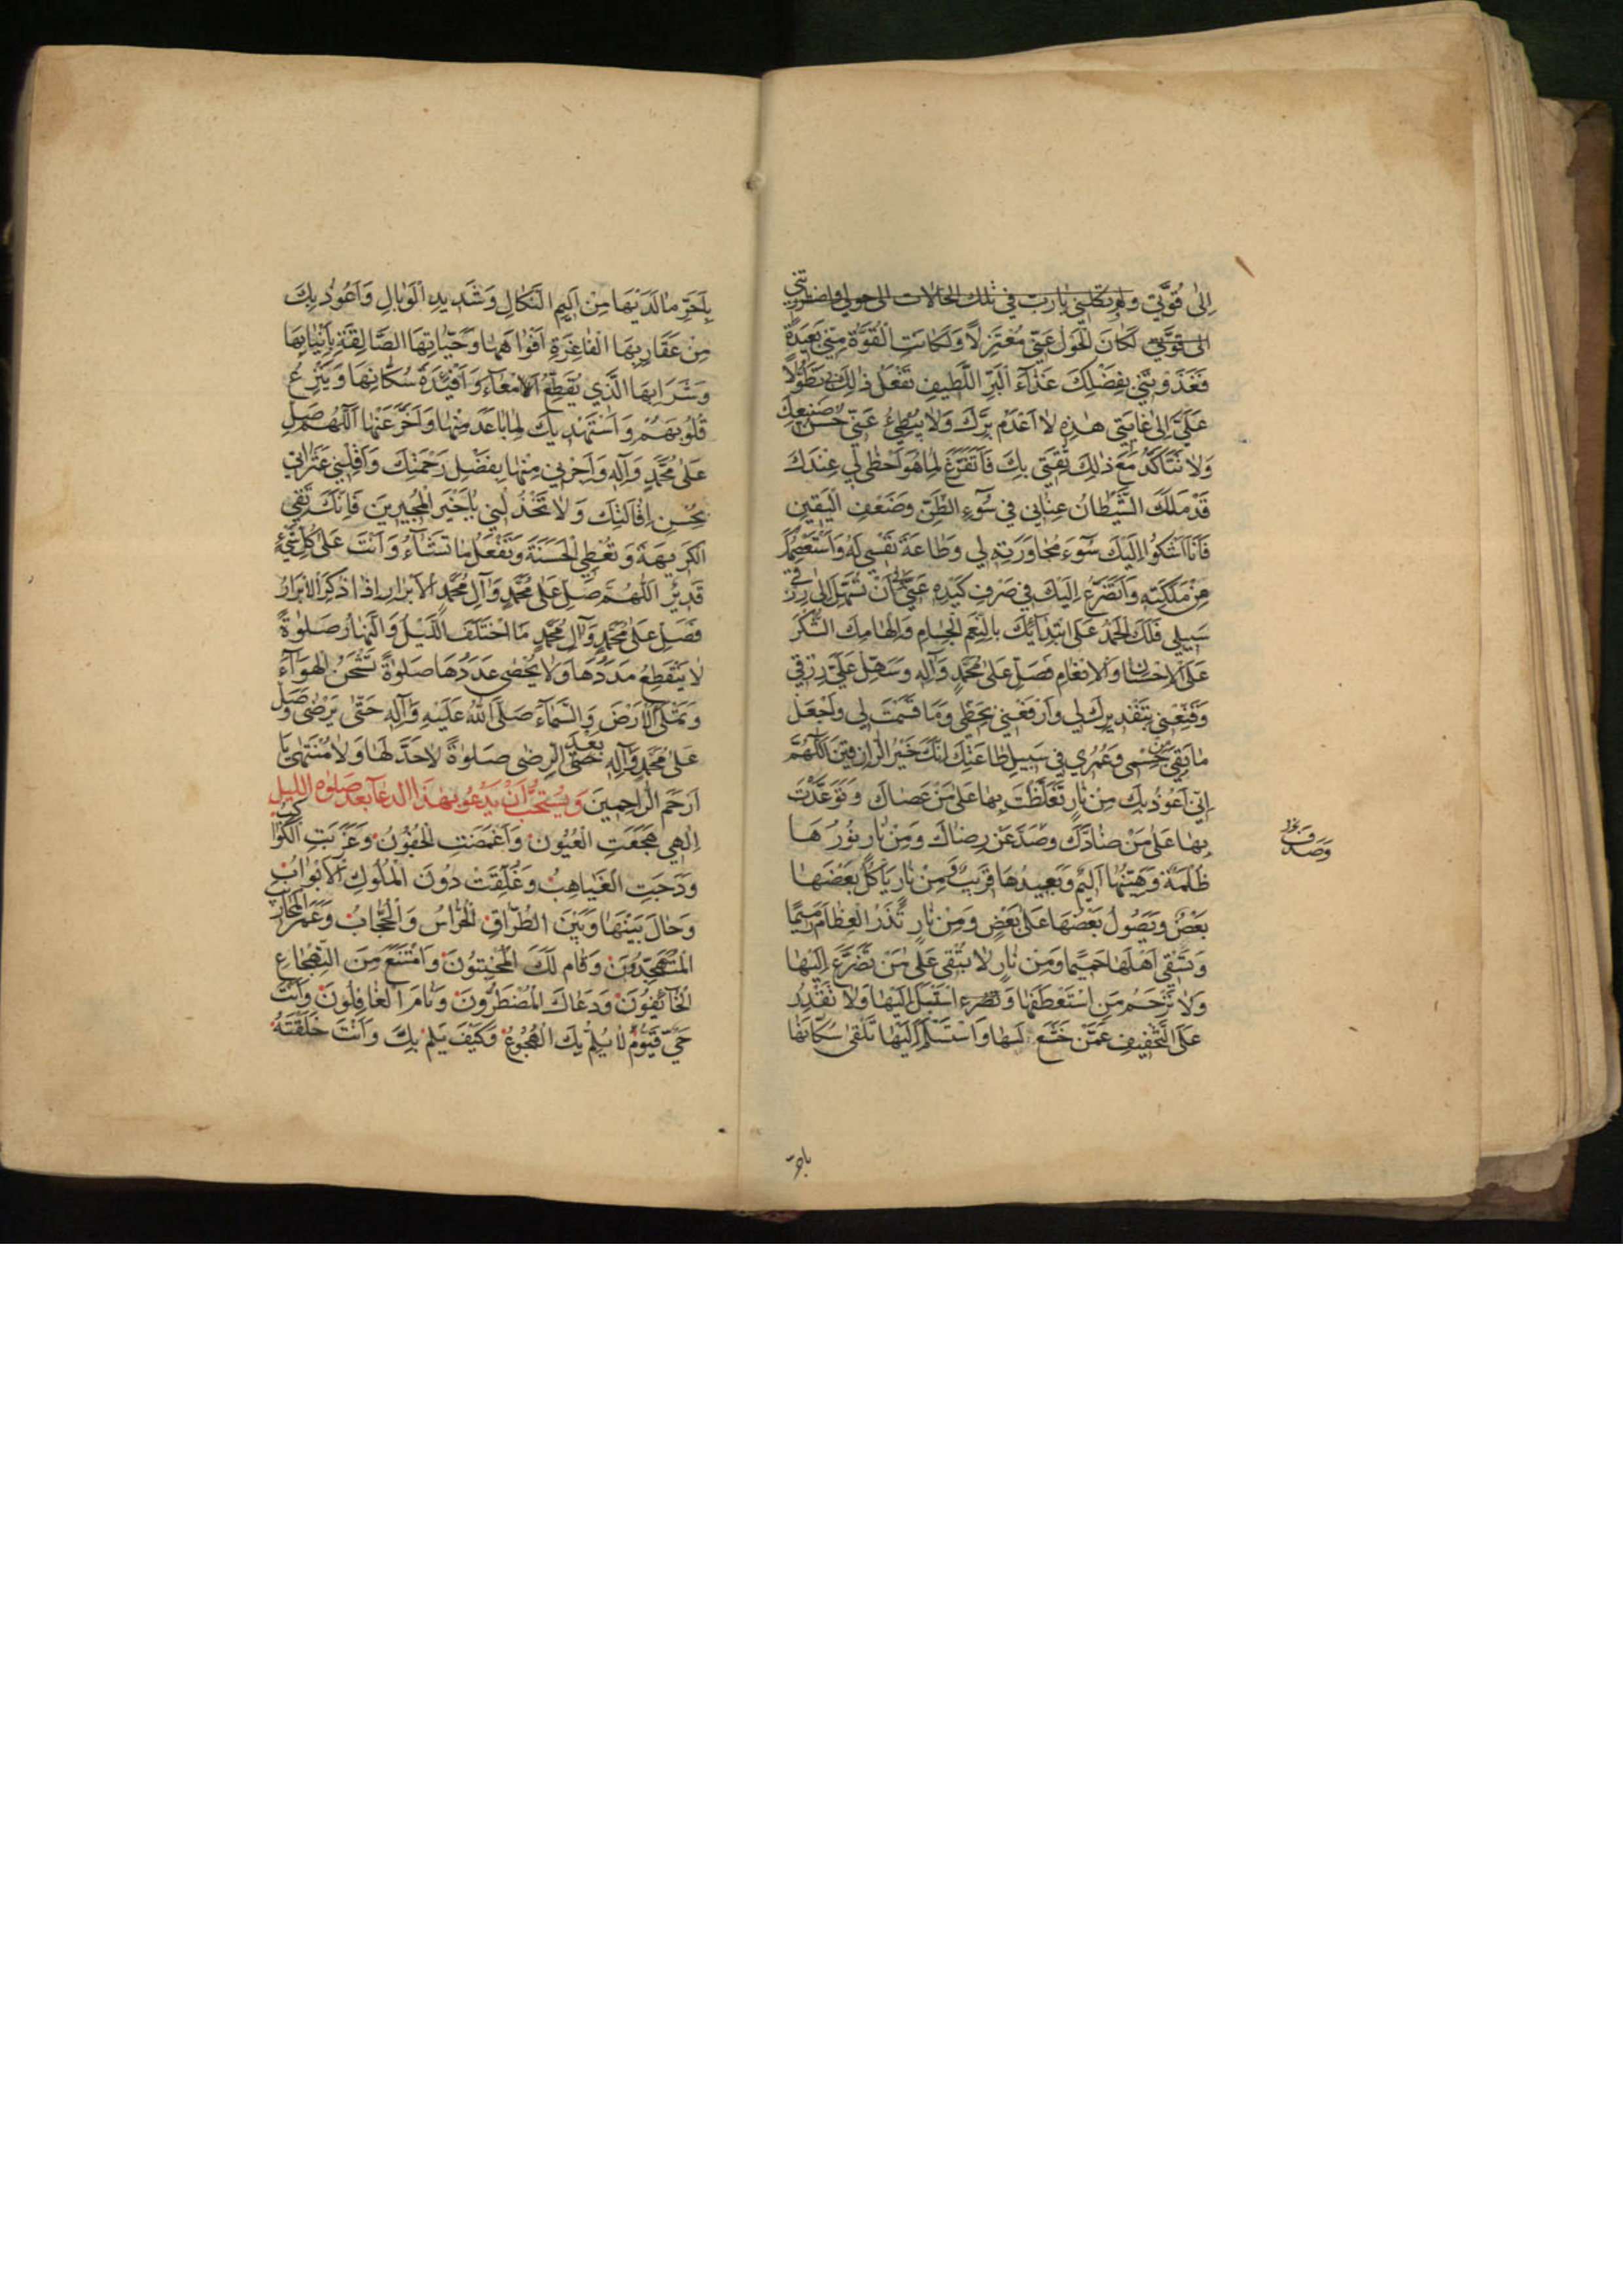 اِلىٰ قُوَّتي وَلَو تَكِلْني يٰارَبِّ في تِلْكَ الحٰالاتِ الى حولي اوتضطرّني
الى قوّتي لَكانَ الْحَوْلُ عَنّي مُعْتَزِلاً وَلَكانَتِ الْقُوَّةُ مِنّي بَعيدَةً
فَغَذَوْتَني بِفَضْلِكَ غَذٰآءَ الْبَرِّ اللَّطيفِ تَفْعَلُ ذٰلِكَ بي تَطَوُّلاً
عَلَيَّ اِلىٰ غٰايَتي هٰذِهِ لاٰ اَعْدَمُ بِرَّكَ وَلاٰ يُبْطِئُ عَنّي حُسْنُ صَنيعِكَ
وَلاٰ تَتَاَكَّدُ مَعَ ذٰلِكَ ثِقَتي بِكَ فَاَتَفَرَّغَ لِمٰا هُوَ اَحْظىٰ لي عِنْدَكَ
قَدْ مَلَكَ الشَّيْطٰانُ عِنٰاني في سُوٓءِ الظَّنِّ وَضَعْفِ الْيَقينِ
فَاَنَا اَشْكُوا اِلَيْكَ سُوٓءَ مُجٰاوَرَتِهِ لي وَطٰاعَةَ نَفْسي لَهُ وَاَسْتَعْصِمُكَ
مِنْ مَلَكَتِهِ وَاَتَضَرَّعُ اِلَيْكَ في صَرْفِ كَيْدِهِ عَنّي اَنْ تُسَهِّلَ اِلىٰ رِزْقي
سَبيلي فَلَكَ الْحَمْدُ عَلَى ابْتِدٰآئِكَ بِالنِّعَمِ الْجِسٰامِ وَاِلْهٰامِكَ الشُّكْرَ
عَلَى الاِحْسٰانِ وَالاِنْعٰامِ فَصَلِّ عَلىٰ مُحَمَّدٍ وَآلِهِ وَسَهِّلْ عَلَيَّ رِزْقي
وَقَنِّعْني بِتَقْديرِكَ لي وَارْفَعْني بِحَظّي وَمٰا قَسَمْتَ لي وَاجْعَلْ
مٰا بَقِيَ مِنْ جِسْمي وَعُمُري في سَبيلِ طٰاعَتِكَ اِنَّكَ خَيْرُ الرّازِقينَ اَللّٰهُمَّ
اِنّي اَعُوذُ بِكَ مِنْ نٰارٍ تَغَلَّظْتَ بِهٰا عَلىٰ مَنْ عَصٰاكَ وَتَوَعَّدْتَ
بِهٰا عَلىٰ مَنْ ضٰادَّكَ وَصَدَّ عَنْ رِضٰاكَ وَمِنْ نٰارٍ نُورُهٰا
وَصَدَفَ
ظُلْمَةٌ وَهَيِّنُهٰا اَليمٌ وَبَعيدُهٰا قَريبٌ وَمِنْ نٰارٍ يَاْكُلُ بَعْضَهٰا
بَعْضٌ وَيَصُولُ بَعْضُهٰا عَلىٰ بَعْضٍ وَمِنْ نٰارٍ تَذَرُ الْعِظٰامَ رَميمًا
وَتَسْقي اَهْلَهٰا حَميمًا وَمِنْ نٰارٍ لاٰ تُبْقي عَلىٰ مَنْ تَضَرَّعَ اِلَيْهٰا
وَلاٰ تَرْحَمُ مَنِ اسْتَعْطَفَهٰا اِلَيْهٰا وَلاٰ تَقْدِرُ
عَلَى التَّخْفيفِ عَمَّنْ خَشَعَ لَهٰا وَاسْتَسْلَمَ اِلَيْهٰا تَلْقىٰ سُكّٰانَهٰا
باحرّ
بِاَحَرِّ مٰا لَدَيْهٰا مِنْ اَليمِ النَّكٰالِ وَشَديدِ الْوَبٰالِ وَاَعُوذُ بِكَ
مِنْ عَقٰارِبِهَا الْفٰاغِرَةِ اَفْوٰاهَهٰا وَحَيّٰاتِهَا الصّٰالِقَةِ بِاَنْيٰابِهٰا
وَشَرٰابِهَا الَّذي يُقَطِّعُ الاَمْعٰآءَ وَاَفْئِدَةَ سُكّٰانِهٰا وَيَنْزِعُ
قُلُوبَهُمْ وَاَسْتَهْديكَ لِمٰا بٰاعَدَ مِنْهٰا وَاَخَّرَ عَنْهٰا اَللّٰهُمَّ صَلِّ
عَلىٰ مُحَمَّدٍ وَآلِهِ وَاَجِرْني مِنْهٰا بِفَضْلِ رَحْمَتِكَ وَاَقِلْني عَثَرٰاتي
بِحُسْنِ اِقٰالَتِكَ وَلاٰ تَخْذُلْني يٰا خَيْرَ الْمُجيرينَ فَاِنَّكَ تَقي
الْكَريهَةَ وَتُعْطِي الْحَسَنَةَ وَتَفْعَلُ مٰا تَشٰآءُ وَاَنْتَ عَلىٰ كُلِّ شَيْءٍ
قَديرٌ اَللّٰهُمَّ صَلِّ عَلىٰ مُحَمَّدٍ وَآلِ مُحَمَّدٍ الاَبْرٰارِ اِذٰا ذُكِرَ الاَبْرٰارُ
فَصَلِّ عَلىٰ مُحَمَّدٍ وَآلِ مُحَمَّدٍ مَا اخْتَلَفَ اللَّيْلُ وَالنَّهٰارُ صَلوٰةً
لاٰ يَنْقَطِعُ مَدَدُهٰا وَلاٰ يُحْصىٰ عَدَدُهٰا صَلوٰةً تَشْحَنُ الْهَوٰآءَ
وَتَمْلَأُ الاَرْضَ وَالسَّمٰآءَ صَلَّى اللّٰهُ عَلَيْهِ وَآلِهِ حَتّىٰ يَرْضىٰ وَصَلِّ
عَلىٰ مُحَمَّدٍ وَآلِهِ بَعْدَ الرِّضىٰ صَلوٰةً لاٰ حَدَّ لَهٰا وَلاٰ مُنْتَهىٰ يٰا
اَرْحَمَ الرّٰاحِمينَ وَيُسْتَحَبُّ اَنْ يَدْعُوَ بِهٰذَا الدعآء بعد صلوة الليل
اِلٰهي هَجَعَتِ الْعُيُونُ وَاَغْمَضَتِ الْجُفُونُ وَغَرَبَتِ الْكَوٰاكِبُ
وَدَجَتِ الْغَيٰاهِبُ وَغُلِّقَتْ دُونَ الْمُلُوكِ الاَبْوٰابُ
وَحٰالَ بَيْنَهٰا وَبَيْنَ الطُّرّٰاقِ الْحُرّٰاسُ وَالْحُجّٰابُ وَعَمَرَ الْمَحٰاريبَ
الْمُتَهَجِّدُونَ وَقٰامَ لَكَ الْمُخْبِتُونَ وَامْتَنَعَ مِنَ التَّهْجٰاعِ
الْخٰآئِفُونَ وَدَعٰاكَ الْمُضْطَرُّونَ وَنٰامَ الْغٰافِلُونَ وَاَنْتَ
حَيٌّ قَيُّومٌ لاٰ يُلِمُّ بِكَ الْهُجُوعُ وَكَيْفَ يُلِمُّ بِكَ وَاَنْتَ خَلَقْتَهُ